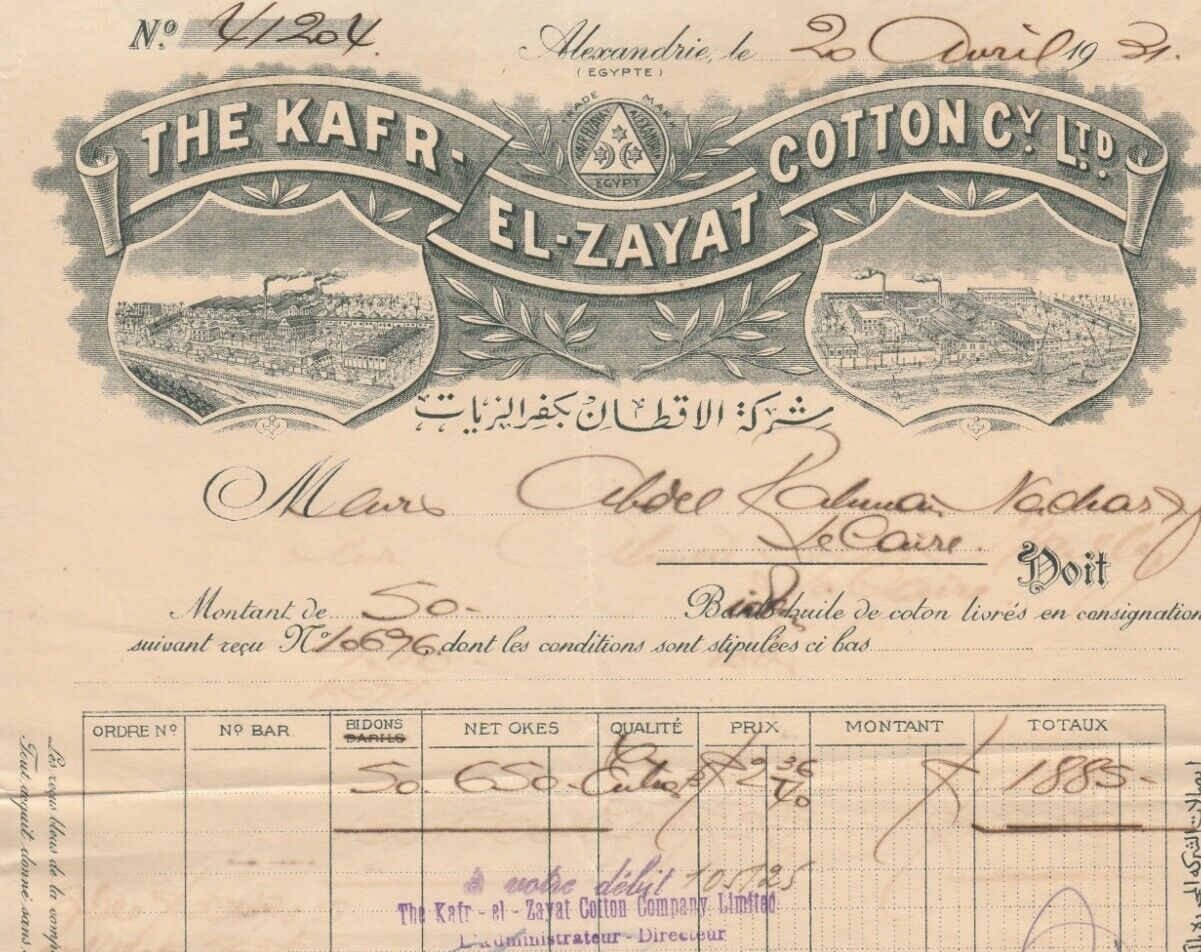 N.º 41204.
Alexandrie, le 20 Avril 1931.
(EGYPTE)
TRADE MARK
KAFRZAYAT ALEXANDRIA
EGYPT
THE KAFR-
EL-ZAYAT
COTTON CY. LTD.
شركة الاقطان بكفر الزيات
Abdel Rahman
Le Caire.
Doit
Montant de 50- d'huile de coton livrés en consignation
suivant reçu Nº 10696 dont les conditions sont stipulées ci bas
ORDRE Nº NO BAR. BIDONS BARILS NET OKES QUALITÉ PRIX MONTANT TOTAUX
50. 650- Extra 2 36/40 1885-
à votre débit
The Kafr-el-Zayat Cotton Company Limited
L'administrateur-Directeur
Les reçus bleus de la comp
Tout acquit donné sans